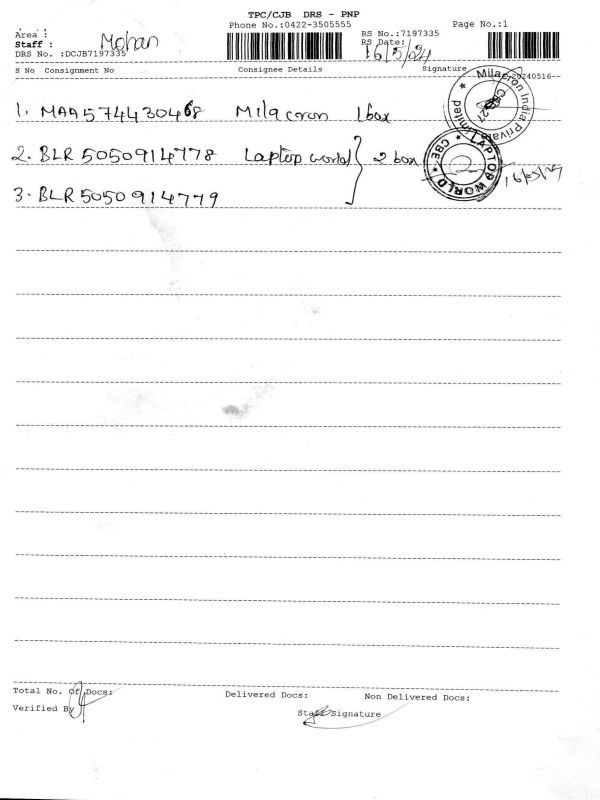 TPC/CJB DRS - PNP
Phone No.:0422-3505555
Page No.:1
Area :
Staff : Mohan
DRS No. :DCJB7197335
RS No.:7197335
RS Date: 16/5/24
S No Consignment No Consignee Details Signature
-20240516--
1. MAA574430468 Milacron 1 box
Milacron India Private Limited
2. BLR 5050914778 Laptop world } 2 box
LAPTOP WORLD ★ CBE ★
16/05/24
3. BLR 5050914779
Total No. Of Docs: Delivered Docs: Non Delivered Docs:
Verified By Staff Signature